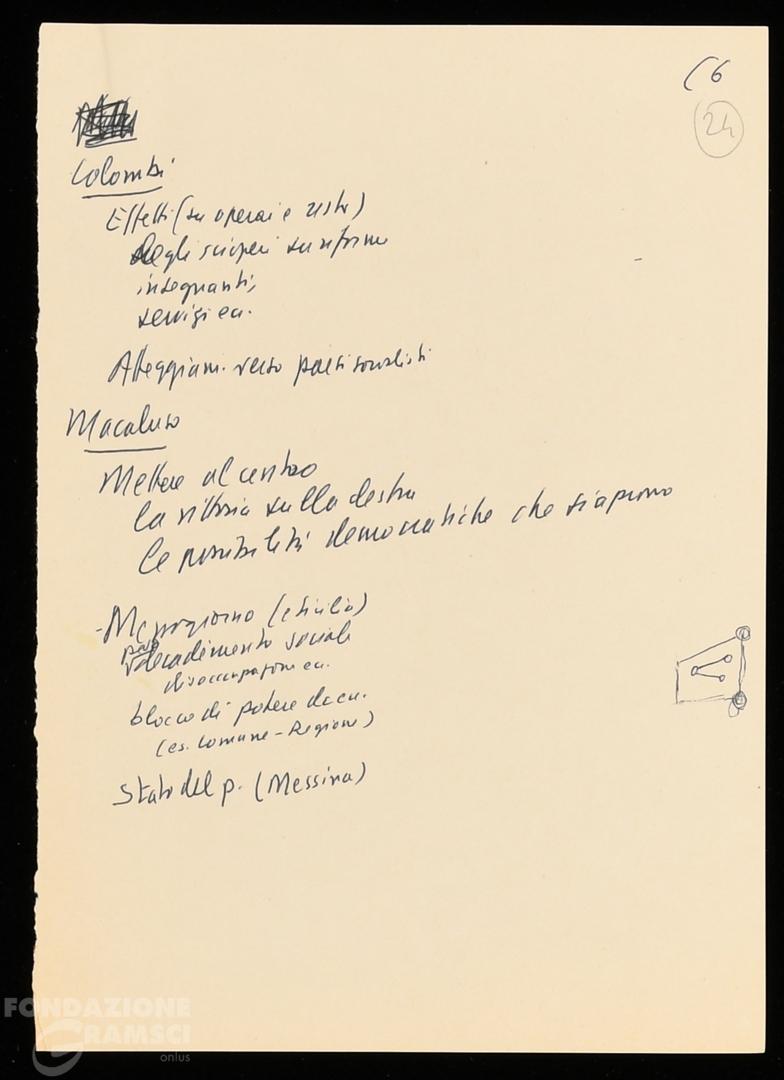 (6
24
Colombi
Effetti (su operai e resto)
degli scioperi su riforme
insegnanti,
servizi ecc.
Atteggiam. verso partiti socialisti
Macaluso
Mettere al centro
la vittoria sulla destra
le possibilità democratiche che si aprono
- Mezzogiorno (e Sicilia)
decadimento sociale
disoccupazione ecc.
blocco di potere d.c. ecc.
(es. Comune - Regione)
Stato del p. (Messina)
FONDAZIONE
GRAMSCI
onlus